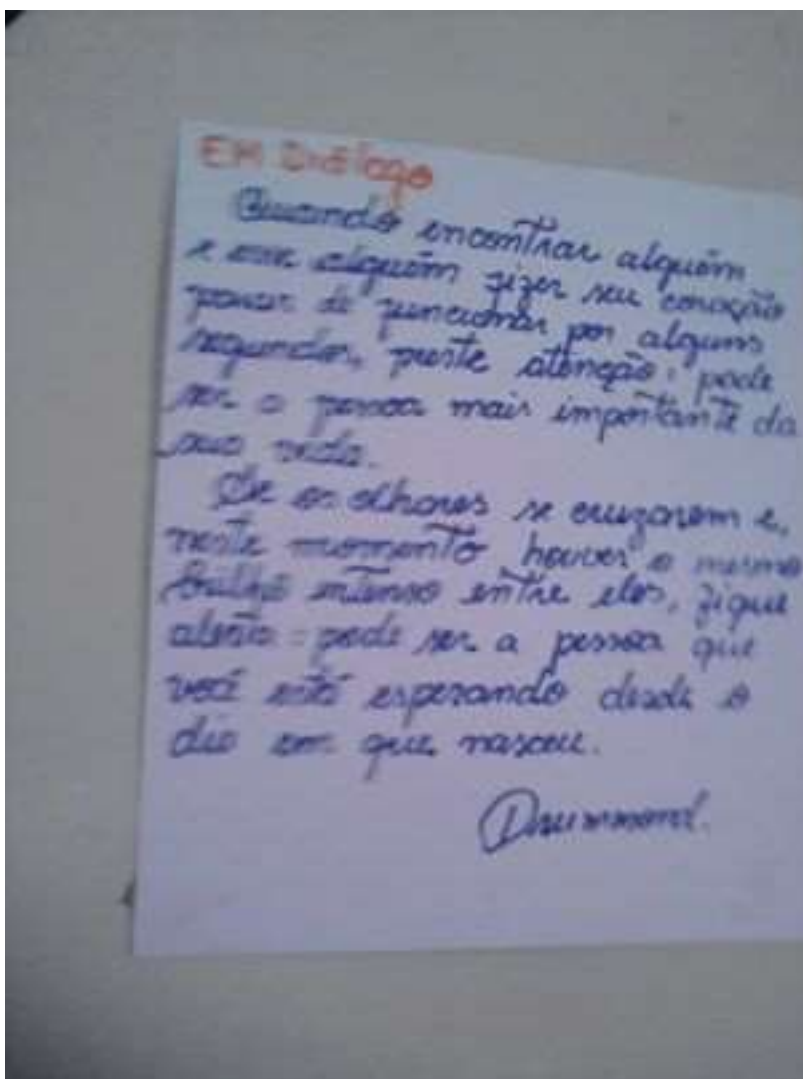 EM Diálogo
Quando encontrar alguém
e esse alguém fizer seu coração
parar de funcionar por alguns
segundos, preste atenção: pode
ser a pessoa mais importante da
sua vida.
Se os olhares se cruzarem e,
neste momento houver o mesmo
brilho intenso entre eles, fique
alerta: pode ser a pessoa que
você está esperando desde o
dia em que nasceu.
Drummond.